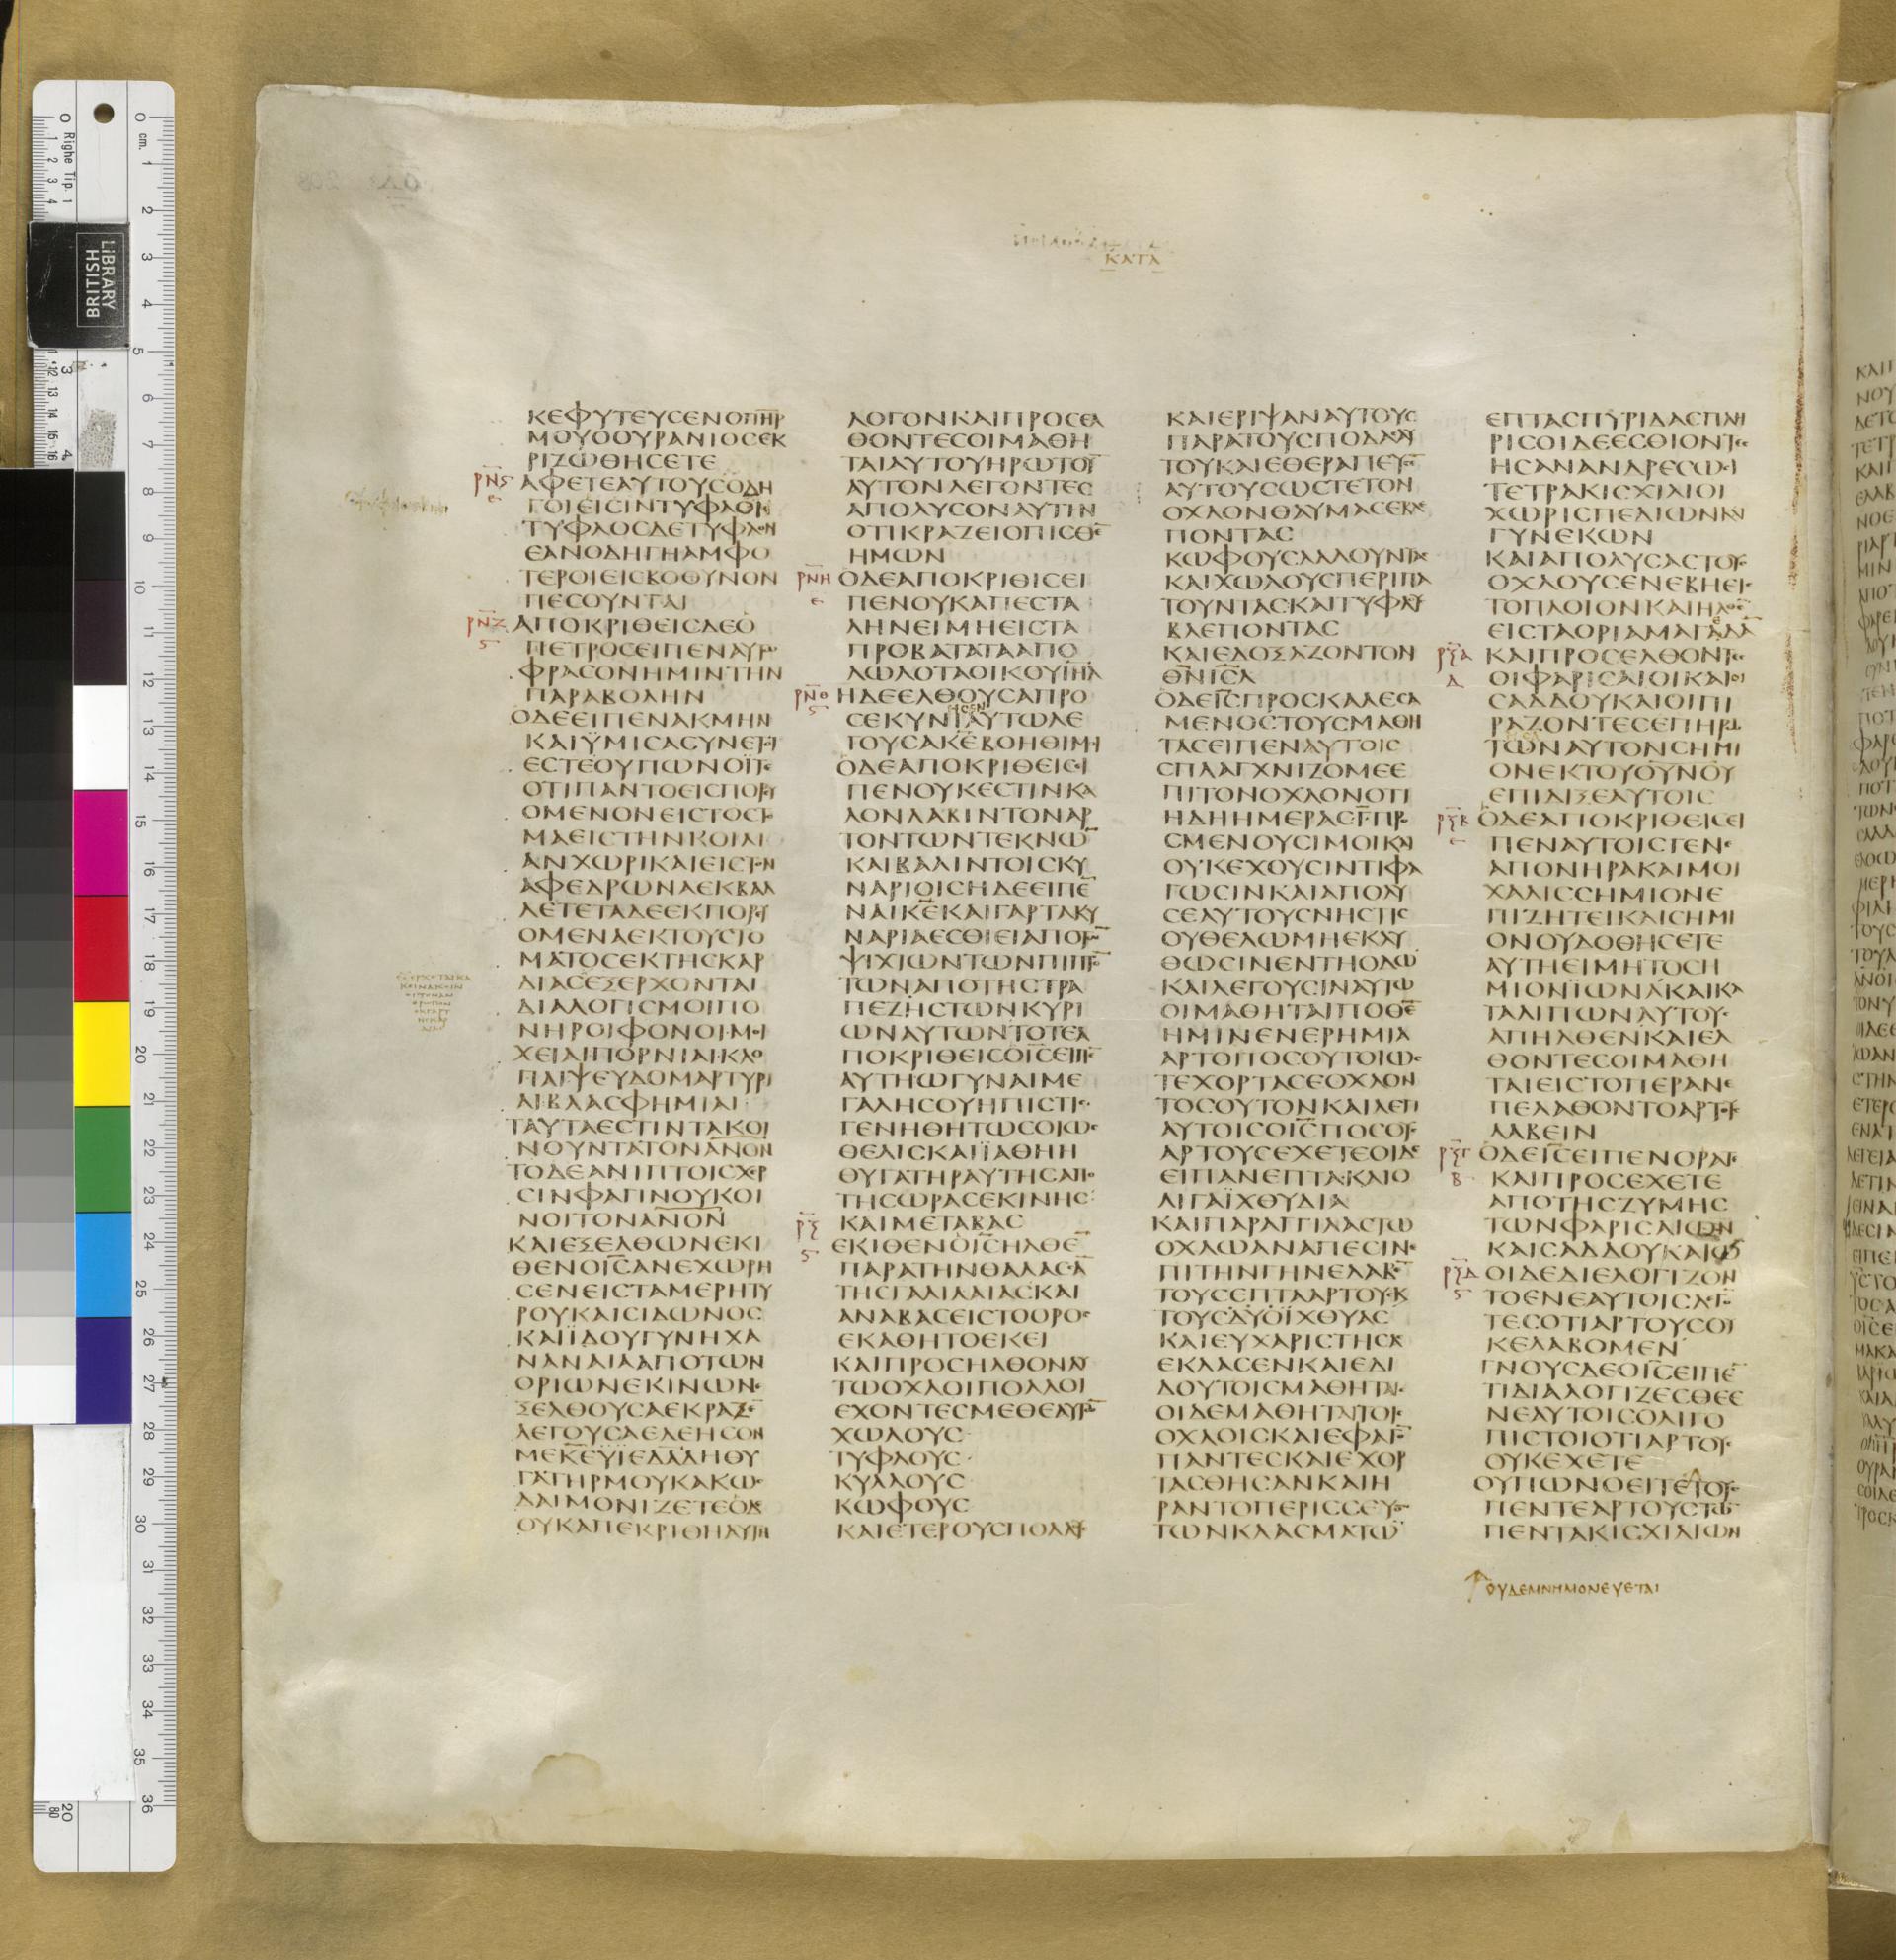 ΚΑΤΑ
ΚΕΦΥΤΕΥϹΕΝΟΠΗΡ
ΜΟΥΟΟΥΡΑΝΙΟϹΕΚ
ΡΙΖΩΘΗϹΕΤΕ
ΑΦΕΤΕΑΥΤΟΥϹΟΔΗ
ΓΟΙΕΙϹΙΝΤΥΦΛΟΙ
ΤΥΦΛΟϹΔΕΤΥΦΛΟΝ
ΕΑΝΟΔΗΓΗΑΜΦΟ
ΤΕΡΟΙΕΙϹΒΟΘΥΝΟΝ
ΠΕϹΟΥΝΤΑΙ
ΑΠΟΚΡΙΘΕΙϹΔΕΟ
ΠΕΤΡΟϹΕΙΠΕΝΑΥΤΩ
ΦΡΑϹΟΝΗΜΙΝΤΗΝ
ΠΑΡΑΒΟΛΗΝ
ΟΔΕΕΙΠΕΝΑΚΜΗΝ
ΚΑΙΫΜΙϹΑϹΥΝΕΤΟΙ
ΕϹΤΕΟΥΠΩΝΟΪΤΕ
ΟΤΙΠΑΝΤΟΕΙϹΠΟΡΥ
ΟΜΕΝΟΝΕΙϹΤΟϹΤΟ
ΜΑΕΙϹΤΗΝΚΟΙΛΙ
ΑΝΧΩΡΙΚΑΙΕΙϹΤΟΝ
ΑΦΕΔΡΩΝΑΕΚΒΑΛ
ΛΕΤΕΤΑΔΕΕΚΠΟΡΥ
ΟΜΕΝΑΕΚΤΟΥϹΤΟ
ΜΑΤΟϹΕΚΤΗϹΚΑΡ
ΔΙΑϹΕΞΕΡΧΟΝΤΑΙ
ΔΙΑΛΟΓΙϹΜΟΙΠΟ
ΝΗΡΟΙΦΟΝΟΙΜΟΙ
ΧΕΙΑΙΠΟΡΝΙΑΙΚΛΟ
ΠΑΙΨΕΥΔΟΜΑΡΤΥΡΙ
ΑΙΒΛΑϹΦΗΜΙΑΙ
ΤΑΥΤΑΕϹΤΙΝΤΑΚΟΙ
ΝΟΥΝΤΑΤΟΝΑΝΟΝ
ΤΟΔΕΑΝΙΠΤΟΙϹΧΕΡ
ϹΙΝΦΑΓΙΝΟΥΚΟΙ
ΝΟΙΤΟΝΑΝΟΝ
ΚΑΙΕΞΕΛΘΩΝΕΚΙ
ΘΕΝΟΙϹΑΝΕΧΩΡΗ
ϹΕΝΕΙϹΤΑΜΕΡΗΤΥ
ΡΟΥΚΑΙϹΙΔΩΝΟϹ
ΚΑΙΪΔΟΥΓΥΝΗΧΑ
ΝΑΝΑΙΑΑΠΟΤΩΝ
ΟΡΙΩΝΕΚΙΝΩΝΕ
ΞΕΛΘΟΥϹΑΕΚΡΑΖΕ
ΛΕΓΟΥϹΑΕΛΕΗϹΟΝ
ΜΕΚΕΫΪΕΔΑΔΗΘΥ
ΓΑΤΗΡΜΟΥΚΑΚΩϹ
ΔΑΙΜΟΝΙΖΕΤΕΟΔΕ
ΟΥΚΑΠΕΚΡΙΘΗΑΥΤΗ
ΛΟΓΟΝΚΑΙΠΡΟϹΕΛ
ΘΟΝΤΕϹΟΙΜΑΘΗ
ΤΑΙΑΥΤΟΥΗΡΩΤΟΥ
ΑΥΤΟΝΛΕΓΟΝΤΕϹ
ΑΠΟΛΥϹΟΝΑΥΤΗΝ
ΟΤΙΚΡΑΖΕΙΟΠΙϹΘΕ
ΗΜΩΝ
ΟΔΕΑΠΟΚΡΙΘΙϹΕΙ
ΠΕΝΟΥΚΑΠΕϹΤΑ
ΛΗΝΕΙΜΗΕΙϹΤΑ
ΠΡΟΒΑΤΑΤΑΑΠΟ
ΛΩΛΟΤΑΟΙΚΟΥΙΗΛ
ΗΔΕΕΛΘΟΥϹΑΠΡΟ
ϹΕΚΥΝΙΑΥΤΩΛΕ
ΓΟΥϹΑΚΕΒΟΗΘΙΜΟΙ
ΟΔΕΑΠΟΚΡΙΘΕΙϹΕΙ
ΠΕΝΟΥΚΕϹΤΙΝΚΑ
ΛΟΝΛΑΒΙΝΤΟΝΑΡ
ΤΟΝΤΩΝΤΕΚΝΩ
ΚΑΙΒΑΛΙΝΤΟΙϹΚΥ
ΝΑΡΙΟΙϹΗΔΕΕΙΠΕ
ΝΑΙΚΕΚΑΙΓΑΡΤΑΚΥ
ΝΑΡΙΑΕϹΘΙΕΙΑΠΟΤΩ
ΨΙΧΙΩΝΤΩΝΠΙΠΤΟ
ΤΩΝΑΠΟΤΗϹΤΡΑ
ΠΕΖΗϹΤΩΝΚΥΡΙ
ΩΝΑΥΤΩΝΤΟΤΕΑ
ΠΟΚΡΙΘΕΙϹΟΙϹΕΙΠΕ
ΑΥΤΗΩΓΥΝΑΙΜΕ
ΓΑΛΗϹΟΥΗΠΙϹΤΙϹ
ΓΕΝΗΘΗΤΩϹΟΙΩϹ
ΘΕΛΙϹΚΑΙΪΑΘΗΗ
ΘΥΓΑΤΗΡΑΥΤΗϹΑΠΟ
ΤΗϹΩΡΑϹΕΚΙΝΗϹ
ΚΑΙΜΕΤΑΒΑϹ
ΕΚΙΘΕΝΟΙϹΗΛΘΕ
ΠΑΡΑΤΗΝΘΑΛΑϹϹΑ
ΤΗϹΓΑΛΙΛΑΙΑϹΚΑΙ
ΑΝΑΒΑϹΕΙϹΤΟΟΡΟϹ
ΕΚΑΘΗΤΟΕΚΕΙ
ΚΑΙΠΡΟϹΗΛΘΟΝΑΥ
ΤΩΟΧΛΟΙΠΟΛΛΟΙ
ΕΧΟΝΤΕϹΜΕΘΕΑΥΤΩ
ΧΩΛΟΥϹ
ΤΥΦΛΟΥϹ
ΚΥΛΛΟΥϹ
ΚΩΦΟΥϹ
ΚΑΙΕΤΕΡΟΥϹΠΟΛΛΟΥϹ
ΚΑΙΕΡΙΨΑΝΑΥΤΟΥϹ
ΠΑΡΑΤΟΥϹΠΟΔΑϹΑΥ
ΤΟΥΚΑΙΕΘΕΡΑΠΕΥϹΕ
ΑΥΤΟΥϹΩϹΤΕΤΟΝ
ΟΧΛΟΝΘΑΥΜΑϹΕΒΛΕ
ΠΟΝΤΑϹ
ΚΩΦΟΥϹΛΑΛΟΥΝΤΑϹ
ΚΑΙΧΩΛΟΥϹΠΕΡΙΠΑ
ΤΟΥΝΤΑϹΚΑΙΤΥΦΛΟΥϹ
ΒΛΕΠΟΝΤΑϹ
ΚΑΙΕΔΟΞΑΖΟΝΤΟΝ
ΘΝΙϹΛ
ΟΔΕΙϹΠΡΟϹΚΑΛΕϹΑ
ΜΕΝΟϹΤΟΥϹΜΑΘΗ
ΤΑϹΕΙΠΕΝΑΥΤΟΙϹ
ϹΠΛΑΓΧΝΙΖΟΜΕΕ
ΠΙΤΟΝΟΧΛΟΝΟΤΙ
ΗΔΗΗΜΕΡΑϹΓΠΡΟ
ϹΜΕΝΟΥϹΙΜΟΙΚΑΙ
ΟΥΚΕΧΟΥϹΙΝΤΙΦΑ
ΓΩϹΙΝΚΑΙΑΠΟΛΥ
ϹΕΑΥΤΟΥϹΝΗϹΤΙϹ
ΟΥΘΕΛΩΜΗΕΚΛΥ
ΘΩϹΙΝΕΝΤΗΟΔΩ
ΚΑΙΛΕΓΟΥϹΙΝΑΥΤΩ
ΟΙΜΑΘΗΤΑΙΠΟΘΕ
ΗΜΙΝΕΝΕΡΗΜΙΑ
ΑΡΤΟΙΤΟϹΟΥΤΟΙΩϹ
ΤΕΧΟΡΤΑϹΕΟΧΛΟΝ
ΤΟϹΟΥΤΟΝΚΑΙΛΕΓΙ
ΑΥΤΟΙϹΟΙϹΠΟϹΟΥϹ
ΑΡΤΟΥϹΕΧΕΤΕΟΙΔΕ
ΕΙΠΑΝΕΠΤΑΚΑΙΟ
ΛΙΓΑΪΧΘΥΔΙΑ
ΚΑΙΠΑΡΑΓΓΙΛΑϹΤΩ
ΟΧΛΩΑΝΑΠΕϹΙΝΕ
ΠΙΤΗΝΓΗΝΕΛΑΒΕ
ΤΟΥϹΕΠΤΑΑΡΤΟΥϹΚ
ΤΟΥϹΔΥΟΪΧΘΥΑϹ
ΚΑΙΕΥΧΑΡΙϹΤΗϹΑϹ
ΕΚΛΑϹΕΝΚΑΙΕΔΙ
ΔΟΥΤΟΙϹΜΑΘΗΤΑΙϹ
ΟΙΔΕΜΑΘΗΤΑΙΤΟΙϹ
ΟΧΛΟΙϹΚΑΙΕΦΑΓΟ
ΠΑΝΤΕϹΚΑΙΕΧΟΡ
ΤΑϹΘΗϹΑΝΚΑΙΗ
ΡΑΝΤΟΠΕΡΙϹϹΕΥΟ
ΤΩΝΚΛΑϹΜΑΤΩ
ΕΠΤΑϹΠΥΡΙΔΑϹΠΛΗ
ΡΙϹΟΙΔΕΕϹΘΙΟΝΤΕϹ
ΗϹΑΝΑΝΔΡΕϹΩϹΙ
ΤΕΤΡΑΚΙϹΧΙΛΙΟΙ
ΧΩΡΙϹΠΕΔΙΩΝΚΑΙ
ΓΥΝΕΚΩΝ
ΚΑΙΑΠΟΛΥϹΑϹΤΟΥϹ
ΟΧΛΟΥϹΕΝΕΒΗΕΙϹ
ΤΟΠΛΟΙΟΝΚΑΙΗΛΘΕ
ΕΙϹΤΑΟΡΙΑΜΑΓΑΔΑ
ΚΑΙΠΡΟϹΕΛΘΟΝΤΕϹ
ΟΙΦΑΡΙϹΑΙΟΙΚΑΙΟΙ
ϹΑΔΔΟΥΚΑΙΟΙΠΙ
ΡΑΖΟΝΤΕϹΕΠΗΡΩ
ΤΩΝΑΥΤΟΝϹΗΜΙ
ΟΝΕΚΤΟΥΟΥΝΟΥ
ΕΠΙΔΙΞΕΑΥΤΟΙϹ
ΟΔΕΑΠΟΚΡΙΘΕΙϹΕΙ
ΠΕΝΑΥΤΟΙϹΓΕΝΕ
ΑΠΟΝΗΡΑΚΑΙΜΟΙ
ΧΑΛΙϹϹΗΜΙΟΝΕ
ΠΙΖΗΤΕΙΚΑΙϹΗΜΙ
ΟΝΟΥΔΟΘΗϹΕΤΕ
ΑΥΤΗΕΙΜΗΤΟϹΗ
ΜΙΟΝΪΩΝΑΚΑΙΚΑ
ΤΑΛΙΠΩΝΑΥΤΟΥϹ
ΑΠΗΛΘΕΝΚΑΙΕΛ
ΘΟΝΤΕϹΟΙΜΑΘΗ
ΤΑΙΕΙϹΤΟΠΕΡΑΝΕ
ΠΕΛΑΘΟΝΤΟΑΡΤΟΥϹ
ΛΑΒΕΙΝ
ΟΔΕΙϹΕΙΠΕΝΟΡΑΤΕ
ΚΑΙΠΡΟϹΕΧΕΤΕ
ΑΠΟΤΗϹΖΥΜΗϹ
ΤΩΝΦΑΡΙϹΑΙΩΝ
ΚΑΙϹΑΔΔΟΥΚΑΙΩ
ΟΙΔΕΔΙΕΛΟΓΙΖΟΝ
ΤΟΕΝΕΑΥΤΟΙϹΛΕΓΟ
ΤΕϹΟΤΙΑΡΤΟΥϹΟΥ
ΚΕΛΑΒΟΜΕΝ
ΓΝΟΥϹΔΕΟΙϹΕΙΠΕ
ΤΙΔΙΑΛΟΓΙΖΕϹΘΕΕ
ΝΕΑΥΤΟΙϹΟΛΙΓΟ
ΠΙϹΤΟΙΟΤΙΑΡΤΟΥϹ
ΟΥΚΕΧΕΤΕ
ΟΥΠΩΝΟΕΙΤΕΤΟΥϹ
ΠΕΝΤΕΑΡΤΟΥϹΤΩ
ΠΕΝΤΑΚΙϹΧΙΛΙΩΝ
ΟΥΔΕΜΝΗΜΟΝΕΥΕΤΑΙ